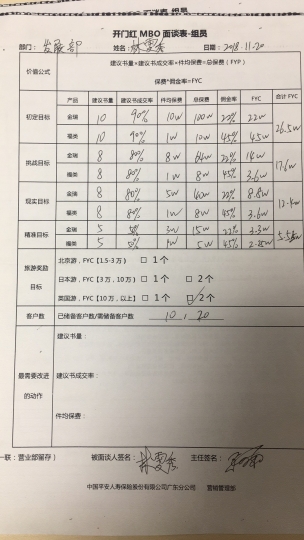 开门红 MBO 面谈表-组员
部门： 发展部 姓名： 林雯秀 日期： 2018.11.20
价值公式 建议书量×建议书成交率×件均保费=总保费（FYP）
保费*佣金率=FYC
产品 建议书量 建议书成交率 件均保费 总保费 佣金率 FYC 合计 FYC
初定目标 金瑞 10 90% 10w 100w 22% 22w 26.5w
福类 10 90% 1w 10w 45% 4.5w
挑战目标 金瑞 8 80% 8w 64w 22% 14w 17.6w
福类 8 80% 1w 8w 45% 3.6w
现实目标 金瑞 8 80% 5w 40w 22% 8.8w 12.4w
福类 8 80% 1w 8w 45% 3.6w
精准目标 金瑞 5 50% 3w 15w 22% 3.3w
福类 5 50% 1w 5w 45% 2.25w
旅游奖励目标 北京游，FYC【1.5-3 万） □ 1 个
日本游，FYC【3 万，10 万） □ 1 个 □ 2 个
英国游，FYC【10 万，以上】 □ 1 个 ☑ 2 个
客户数 已储备客户数/需储备客户数 10 , 20
最需要改进的动作 建议书量：
建议书成交率：
件均保费：
一联：营业部留存） 被面谈人签名： 林雯秀 主任签名：
中国平安人寿保险股份有限公司广东分公司 营销管理部